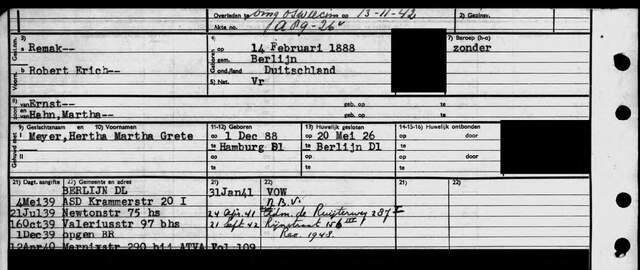 Overleden te omg. Oswiecim op 13-11-42
Akte no. A 89-26v
2) Gezinsv.
3)
a Remak--
b Robert Erich--
4)
op 14 Februari 1888
gem. Berlijn
ond./land Duitschland
5) Nat. Vr
7) Beroep (h-o)
zonder
8)
van Ernst--
en Hahn, Martha--
geb. op te
geb. op te
9) Geslachtsnaam en 10) Voornamen
I Meyer, Hertha Martha Grete
II
11-12) Geboren
op 1 Dec 88
te Hamburg Dl
op
te
13) Huwelijk gesloten
op 20 Mei 26
te Berlijn Dl
op
te
14-15-16) Huwelijk ontbonden
op door
te
op door
te
21) Dagt. aangifte 22) Gemeente en adres
21) 22)
BERLIJN DL
4Mei39 ASD Krammerstr 20 I
21Jul39 Newtonstr 75 hs
16Oct39 Valeriusstr 97 bhs
1Dec39 opgen BR
12Apr40 Marnixstr 290 b14 ATVA Fol 109
31Jan41 VOW
n.B.V.
24 Apr. 41 Adm. de Ruijterweg 237 I
21 Sept 42 Rijnstraat 156 III
Rec. 1948.